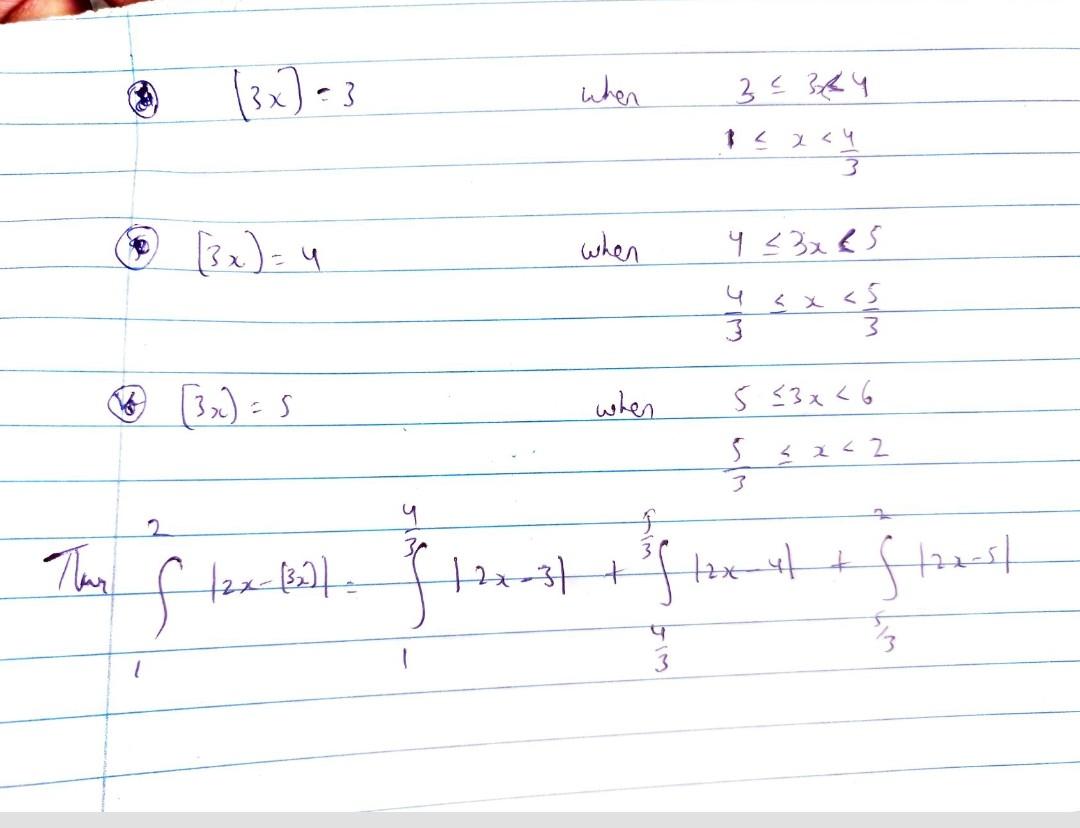 [3x] = 3 when 3 ≤ 3x < 4
1 ≤ x < 4/3
[3x] = 4 when 4 ≤ 3x < 5
4/3 ≤ x < 5/3
[3x] = 5 when 5 ≤ 3x < 6
5/3 ≤ x < 2
Thus ∫₁² |2x-[3x]| = ∫₁^(4/3) |2x-3| + ∫_(4/3)^(5/3) |2x-4| + ∫_(5/3)^2 |2x-5|